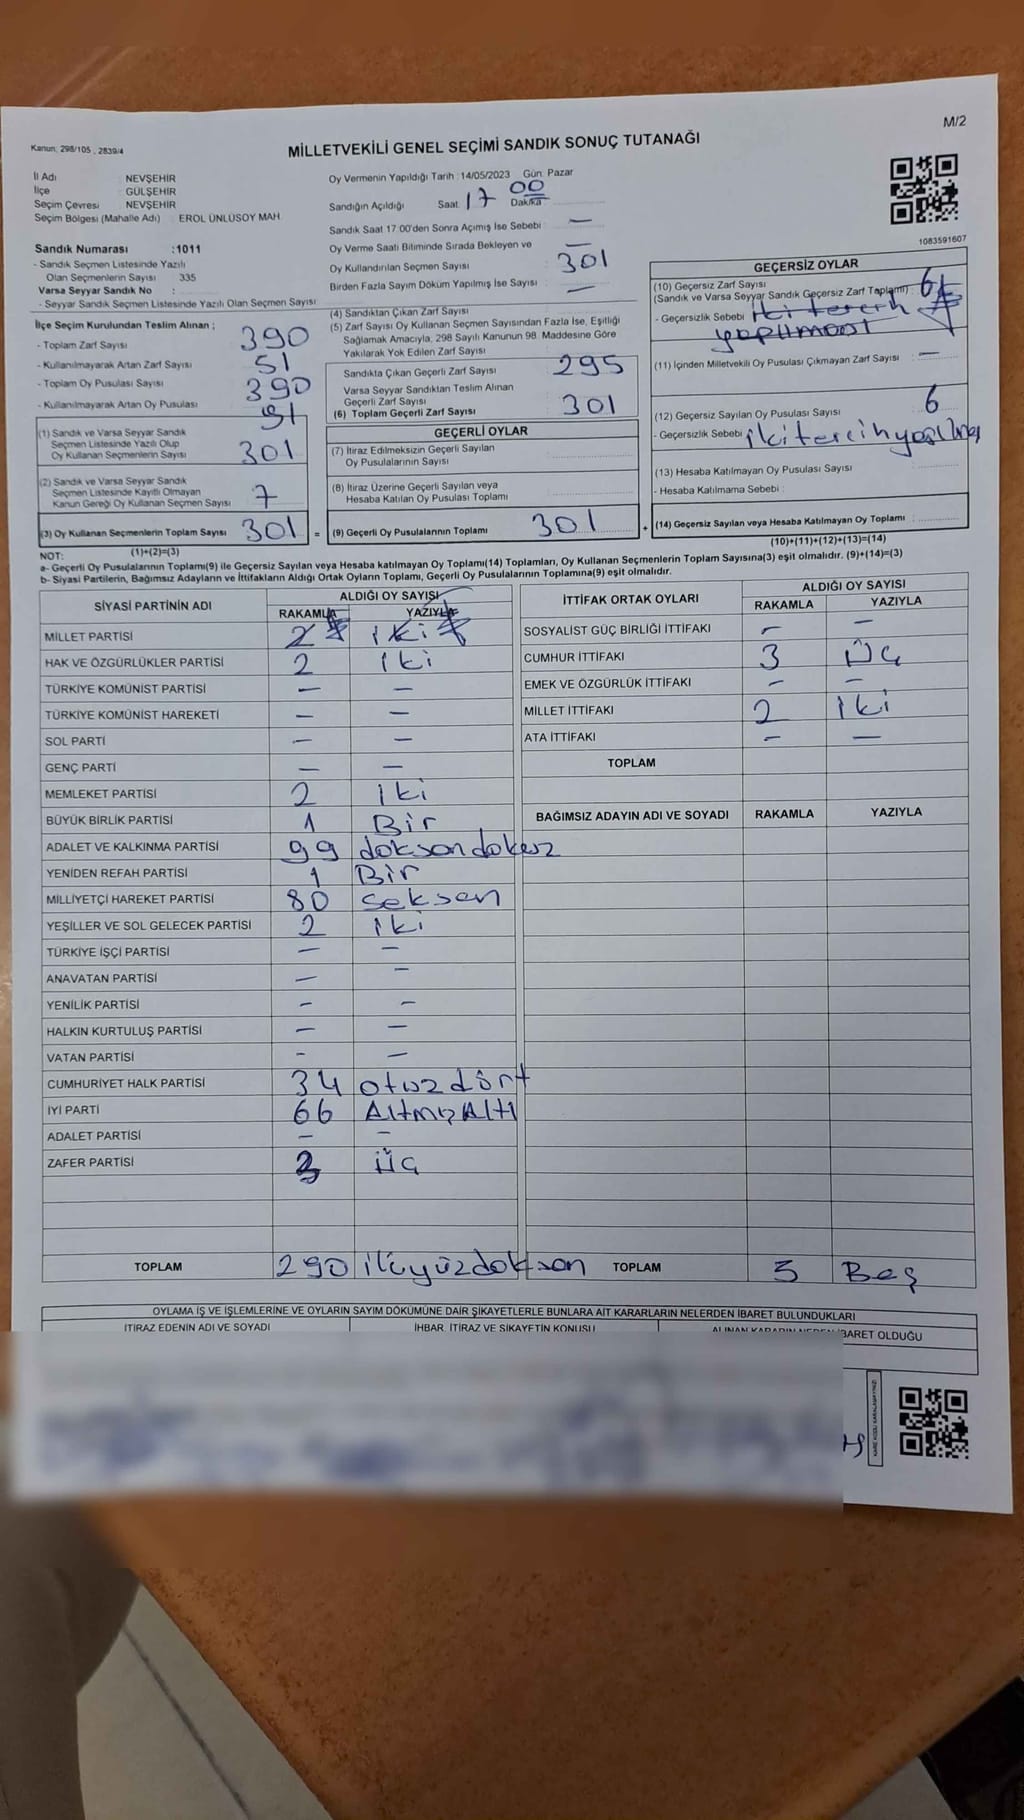 M/2
Kanun: 298/105 , 2839/4
MİLLETVEKİLİ GENEL SEÇİMİ SANDIK SONUÇ TUTANAĞI
İl Adı : NEVŞEHİR
İlçe : GÜLŞEHİR
Seçim Çevresi : NEVŞEHİR
Seçim Bölgesi (Mahalle Adı) : EROL ÜNLÜSOY MAH
Sandık Numarası : 1011
- Sandık Seçmen Listesinde Yazılı
Olan Seçmenlerin Sayısı : 335
Varsa Seyyar Sandık No :
- Seyyar Sandık Seçmen Listesinde Yazılı Olan Seçmen Sayısı
Oy Vermenin Yapıldığı Tarih : 14/05/2023 Gün: Pazar
Sandığın Açıldığı Saat: 17 Dakika: 00
Sandık Saat 17 00'den Sonra Açımış İse Sebebi : —
Oy Verme Saati Bitiminde Sırada Bekleyen ve —
Oy Kullandırılan Seçmen Sayısı : 301
Birden Fazla Sayım Döküm Yapılmış İse Sayısı : —
1083591607
İlçe Seçim Kurulundan Teslim Alınan ;
- Toplam Zarf Sayısı 390
- Kullanılmayarak Artan Zarf Sayısı 51
- Toplam Oy Pusulası Sayısı 390
- Kullanılmayarak Artan Oy Pusulası 51
(1) Sandık ve Varsa Seyyar Sandık
Seçmen Listesinde Yazılı Olup
Oy Kullanan Seçmenlerin Sayısı 301
(2) Sandık ve Varsa Seyyar Sandık
Seçmen Listesinde Kayıtlı Olmayan
Kanun Gereği Oy Kullanan Seçmen Sayısı 7
(3) Oy Kullanan Seçmenlerin Toplam Sayısı 301 =
(1)+(2)=(3)
(4) Sandıktan Çıkan Zarf Sayısı
(5) Zarf Sayısı Oy Kullanan Seçmen Sayısından Fazla İse, Eşitliği
Sağlamak Amacıyla, 298 Sayılı Kanunun 98. Maddesine Göre
Yakılarak Yok Edilen Zarf Sayısı :
Sandıkta Çıkan Geçerli Zarf Sayısı : 295
Varsa Seyyar Sandıktan Teslim Alınan
Geçerli Zarf Sayısı
(6) Toplam Geçerli Zarf Sayısı : 301
GEÇERLİ OYLAR
(7) İtiraz Edilmeksizin Geçerli Sayılan
Oy Pusulalarının Sayısı
(8) İtiraz Üzerine Geçerli Sayılan veya
Hesaba Katılan Oy Pusulası Toplamı
(9) Geçerli Oy Pusulalarının Toplamı 301 +
GEÇERSİZ OYLAR
(10) Geçersiz Zarf Sayısı
(Sandık ve Varsa Seyyar Sandık Geçersiz Zarf Toplamı) : 6
- Geçersizlik Sebebi : iki tercih
yapılması
(11) İçinden Milletvekili Oy Pusulası Çıkmayan Zarf Sayısı : —
(12) Geçersiz Sayılan Oy Pusulası Sayısı 6
- Geçersizlik Sebebi : iki tercih yapılması
(13) Hesaba Katılmayan Oy Pusulası Sayısı
- Hesaba Katılmama Sebebi :
(14) Geçersiz Sayılan veya Hesaba Katılmayan Oy Toplamı :
(10)+(11)+(12)+(13)=(14)
NOT:
a- Geçerli Oy Pusulalarının Toplamı(9) ile Geçersiz Sayılan veya Hesaba katılmayan Oy Toplamı(14) Toplamları, Oy Kullanan Seçmenlerin Toplam Sayısına(3) eşit olmalıdır. (9)+(14)=(3)
b- Siyasi Partilerin, Bağımsız Adayların ve İttifakların Aldığı Ortak Oyların Toplamı, Geçerli Oy Pusulalarının Toplamına(9) eşit olmalıdır.
SİYASİ PARTİNİN ADI ALDIĞI OY SAYISI
RAKAMLA YAZIYLA
MİLLET PARTİSİ 2 iki
HAK VE ÖZGÜRLÜKLER PARTİSİ 2 iki
TÜRKİYE KOMÜNİST PARTİSİ — —
TÜRKİYE KOMÜNİST HAREKETİ — —
SOL PARTİ — —
GENÇ PARTİ — —
MEMLEKET PARTİSİ 2 iki
BÜYÜK BİRLİK PARTİSİ 1 Bir
ADALET VE KALKINMA PARTİSİ 99 doksandokuz
YENİDEN REFAH PARTİSİ 1 Bir
MİLLİYETÇİ HAREKET PARTİSİ 80 seksen
YEŞİLLER VE SOL GELECEK PARTİSİ 2 iki
TÜRKİYE İŞÇİ PARTİSİ — —
ANAVATAN PARTİSİ — —
YENİLİK PARTİSİ — —
HALKIN KURTULUŞ PARTİSİ — —
VATAN PARTİSİ - —
CUMHURİYET HALK PARTİSİ 34 otuzdört
İYİ PARTİ 66 AltmışAltı
ADALET PARTİSİ — —
ZAFER PARTİSİ 3 üç
TOPLAM 290 ikiyüzdoksan
İTTİFAK ORTAK OYLARI ALDIĞI OY SAYISI
RAKAMLA YAZIYLA
SOSYALİST GÜÇ BİRLİĞİ İTTİFAKI — —
CUMHUR İTTİFAKI 3 Üç
EMEK VE ÖZGÜRLÜK İTTİFAKI — —
MİLLET İTTİFAKI 2 iki
ATA İTTİFAKI — —
TOPLAM
BAĞIMSIZ ADAYIN ADI VE SOYADI RAKAMLA YAZIYLA
TOPLAM 5 Beş
OYLAMA İŞ VE İŞLEMLERİNE VE OYLARIN SAYIM DÖKÜMÜNE DAİR ŞİKAYETLERLE BUNLARA AİT KARARLARIN NELERDEN İBARET BULUNDUKLARI
İTİRAZ EDENİN ADI VE SOYADI İHBAR, İTİRAZ VE ŞİKAYETİN KONUSU ALINAN KARARIN NEDEN İBARET OLDUĞU